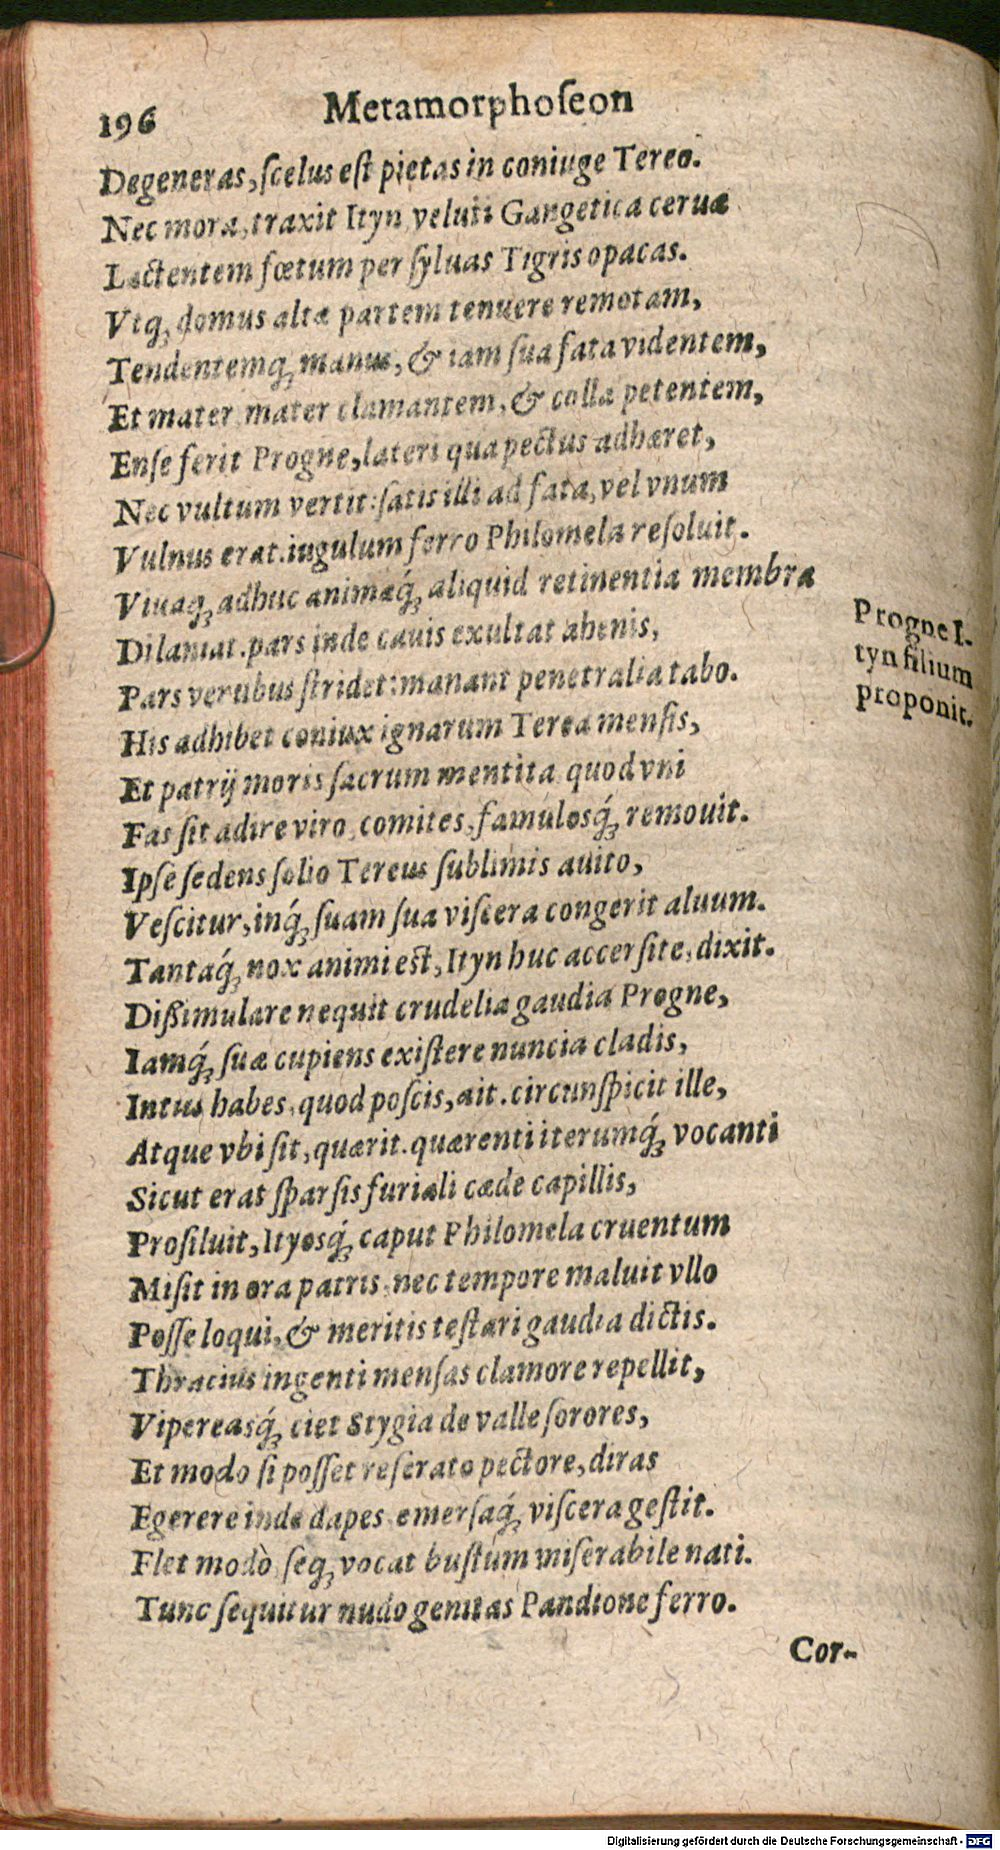 196 Metamorphoſeon
Degeneras, ſcelus eſt pietas in coniuge Tereo.
Nec mora, traxit Ityn veluti Gangetica ceruæ
Lactentem fœtum per ſyluas Tigris opacas.
Vtq́ꝫ domus altæ partem tenuere remotam,
Tendentemq́ꝫ manus, & iam ſua fata videntem,
Et mater, mater clamantem, & colla petentem,
Enſe ferit Progne, lateri qua pectus adhæret,
Nec vultum vertit: ſatis illi ad fata, vel vnum
Vulnus erat. iugulum ferro Philomela reſoluit.
Viuaq́ꝫ adhuc animæq́ꝫ aliquid retinentia membra
Dilaniat. pars inde cauis exultat ahenis,
Pars verubus ſtridet: manant penetralia tabo.
His adhibet coniux ignarum Terea menſis,
Et patrij moris ſacrum mentita, quod vni
Fas ſit adire viro, comites, famulosq́ꝫ remouit.
Ipſe ſedens ſolio Tereus ſublimis auito,
Veſcitur, inq́ꝫ ſuam ſua viſcera congerit aluum.
Tantaq́ꝫ nox animi eſt, Ityn huc accerſite, dixit.
Dißimulare nequit crudelia gaudia Progne,
Iamq́ꝫ ſuæ cupiens exiſtere nuncia cladis,
Intus habes, quod poſcis, ait. circunſpicit ille,
Atque vbi ſit, quærit. quærenti iterumq́ꝫ vocanti
Sicut erat ſparſis furiali cæde capillis,
Proſiluit, Ityosq́ꝫ caput Philomela cruentum
Miſit in ora patris, nec tempore maluit vllo
Poſſe loqui, & meritis teſtari gaudia dictis.
Thracius ingenti menſas clamore repellit,
Vipereasq́ꝫ ciet Stygia de valle ſorores,
Et modo ſi poſſet reſerato pectore, diras
Egerere inde dapes, emerſaq́ꝫ viſcera geſtit.
Flet modò, ſeq́ꝫ vocat buſtum miſerabile nati.
Tunc ſequitur nudo genitas Pandione ferro.
Cor-
Progne I-
tyn filium
proponit.
Digitalisierung gefördert durch die Deutsche Forschungsgemeinschaft - DFG